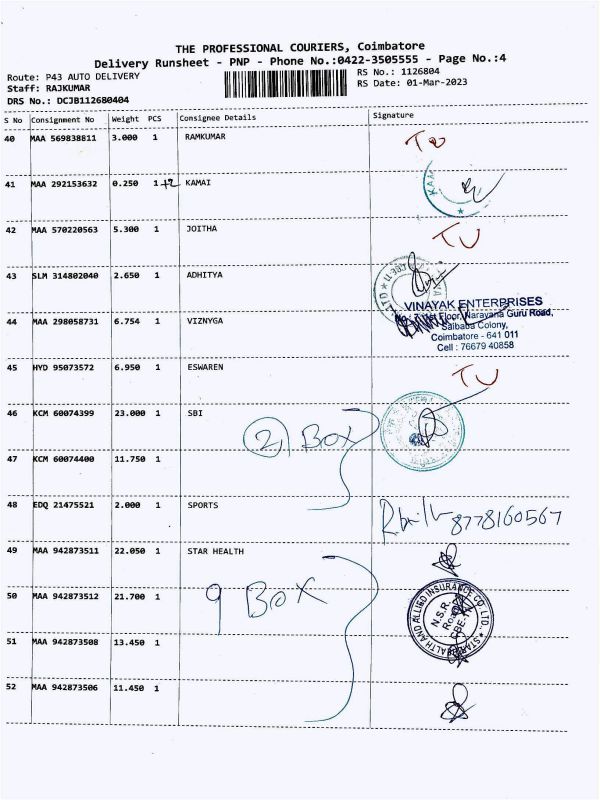 THE PROFESSIONAL COURIERS, Coimbatore
Delivery Runsheet - PNP - Phone No.:0422-3505555 - Page No.:4
Route: P43 AUTO DELIVERY
RS No.: 1126804
Staff: RAJKUMAR
RS Date: 01-Mar-2023
DRS No.: DCJB112680404
S No Consignment No Weight PCS Consignee Details Signature
40 MAA 569838811 3.000 1 RAMKUMAR
41 MAA 292153632 0.250 1 +2 KAMAI
KAM
42 MAA 570220563 5.300 1 JOITHA
TU
43 SLM 314802040 2.650 1 ADHITYA
VINAYAK ENTERPRISES
Floor, Narayana Guru Road,
Saibaba Colony,
44 MAA 298058731 6.754 1 VIZNYGA
Coimbatore - 641 011
Cell : 76679 40858
45 HYD 95073572 6.950 1 ESWAREN
TU
46 KCM 60074399 23.000 1 SBI
2 BOX
47 KCM 60074400 11.750 1
48 EDQ 21475521 2.000 1 SPORTS
8778160567
49 MAA 942873511 22.050 1 STAR HEALTH
9 BOX
50 MAA 942873512 21.700 1
STAR HEALTH AND ALLIED INSURANCE CO. LTD.
N.S.R.
Road
CBE-11
51 MAA 942873508 13.450 1
52 MAA 942873506 11.450 1